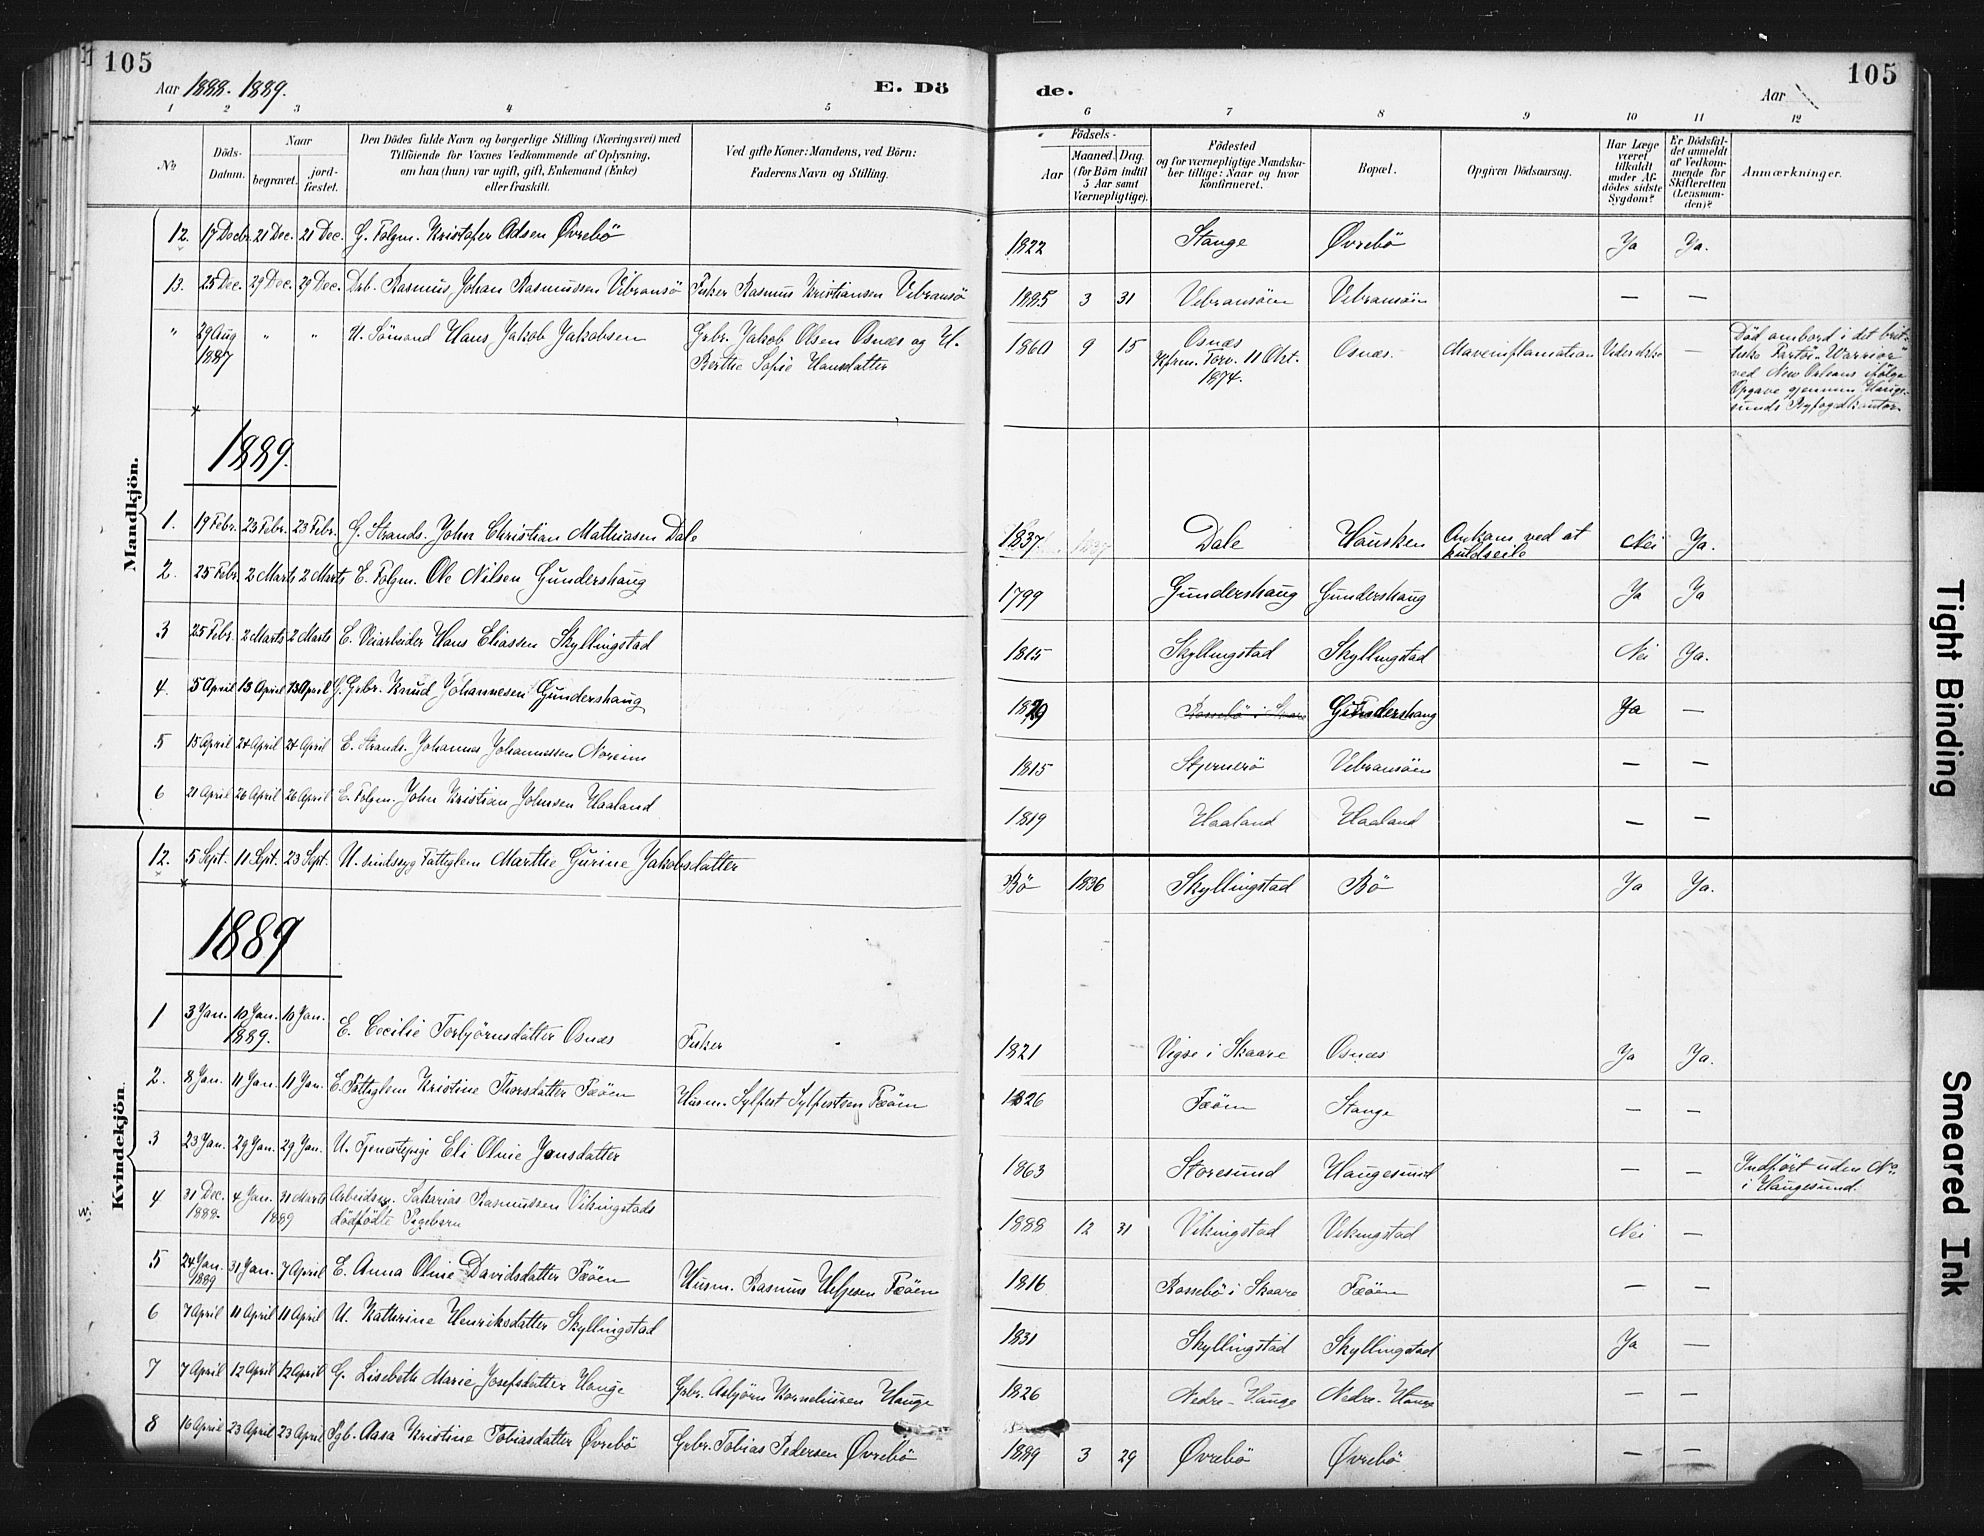 105
Aar 1888-1889.
E. Dö
de.
Aar
105
1 2 3 4 5 6 7 8 9 10 11 12
No
Döds-Datum.
Naar
begravet.
jord-fæstet.
Den Dödes fulde Navn og borgerlige Stilling (Næringsvei) med
Tilföiende for Voxnes Vedkommende af Oplysning,
om han (hun) var ugift, gift, Enkemand (Enke)
eller fraskilt.
Ved gifte Koner: Mandens, ved Börn:
Faderens Navn og Stilling.
Födsels-
Aar
Maaned. Dag.
(for Börn indtil
5 Aar samt
Værnepligtige).
Födested
og for værnepligtige Mandska-
ber tillige: Naar og hvor
konfirmeret.
Bopæl.
Opgiven Dödsaarsag.
Har Læge
været
tilkaldt
under Af-
dödes sidste
Sygdom?
Er Dödsfal-
det anmeldt
af Vedkom-
mende for
Skifteretten
(Lensman-
den)?
Anmærkninger.
Mandkjön.
12. 17 Decbr. 21 Dec. 21 Dec. G. Folgm. Kristofer Adsen Øvrebö 1822 Stange Øvrebö Ja Ja.
13. 25 Dec. 29 Dec. 29 Dec. Drb. Rasmus Johan Rasmussen Vibransö Fisker Rasmus Kristiansen Vibransö 1885 3 31 Vibransöen Vibransöen — —
" 29 Aug 1887 " " U. Sömand Hans Jakob Jakobsen Grbr. Jakob Olsen Osnæs og H. Berthe Sofie Hansdatter 1860 9 15 Osnæs Kfrm. Torv. 11 Okt. 1874. Osnæs. Maveinflamation —
Död ombord i det brit-
tiske Fartöi "Warrior"
ved New Orleans ifölge
Opgave gjennem Hauge-
sunds Byfogdkontor.
1889.
1. 19 Febr. 23 Febr. 23 Febr. G. Strands. John Christian Mathiasen Dale 1837 Dale Hausken Omkom ved at kuldseile Nei Ja.
2. 25 Febr. 2 Marts 2 Marts E. Folgm. Ole Nilsen Gundershaug 1799 Gundershaug Gundershaug Ja Ja
3 25 Febr. 2 Marts 2 Marts E. Veiarbeider Hans Eliassen Skyllingstad 1815 Skyllingstad Skyllingstad Nei Ja.
4. 5 April 13 April 13 April G. Grbr. Knud Johannesen Gundershaug 1829 Rossebö i Skaare Gundershaug Ja —
5 15 April 24 April 24 April E. Strands. Johannes Johannessen Noreim 1815 Stjernerö Vibransöen — —
6 21 April 26 April 26 April E. Folgm. John Kristian Johnsen Haaland 1819 Haaland Haaland — —
Kvindekjön.
12. 5 Sept. 11 Sept. 23 Sept. U. sindssyg Fattiglem Marthe Gurine Jakobsdatter Bö 1836 Skyllingstad Bö Ja Ja.
1889
1 3 Jan. 10 Jan. 1889. 10 Jan. E. Cecilie Torbjörnsdatter Osnæs Fisker 1821 Vigse i Skaare Osnæs Ja Ja.
2. 8 Jan. 11 Jan. 11 Jan. E. Fattiglem Kristine Thorsdatter Fæöen Husm. Sylfest Sylfestsen Fæöen 1826 Fæöen Stange — —
3 23 Jan. 29 Jan. 29 Jan. U. Tjenestepige Eli Oline Jonsdatter 1863 Storesund Haugesund — — Indfört uden No i Haugesund.
4 31 Dec. 1888. 4 Jan. 1889 31 Marts Arbeidsm. Sakarias Rasmussen Vikingstads dödfödte Pigebarn 1888 12 31 Vikingstad Vikingstad Nei —
5 24 Jan. 1889 31 Jan. 7 April E. Anna Oline Davidsdatter Fæöen Husm. Rasmus Helgesen Fæöen 1816 Rossebö i Skaare Fæöen — —
6 7 April 11 April 11 April U. Kathrine Henriksdatter Skyllingstad 1831 Skyllingstad Skyllingstad Ja —
7 7 April 12 April 12 April G. Lisebeth Marie Josefsdatter Hauge Grbr. Asbjörn Korneliusen Hauge 1826 Nedre-Hauge Nedre-Hauge — —
8 16 April 23 April 23 April Pgb. Aasa Kristine Tobiasdatter Øvrebö Grbr. Tobias Pedersen Øvrebö 1889 3 29 Øvrebö Øvrebö — —
Tight Binding
Smeared Ink